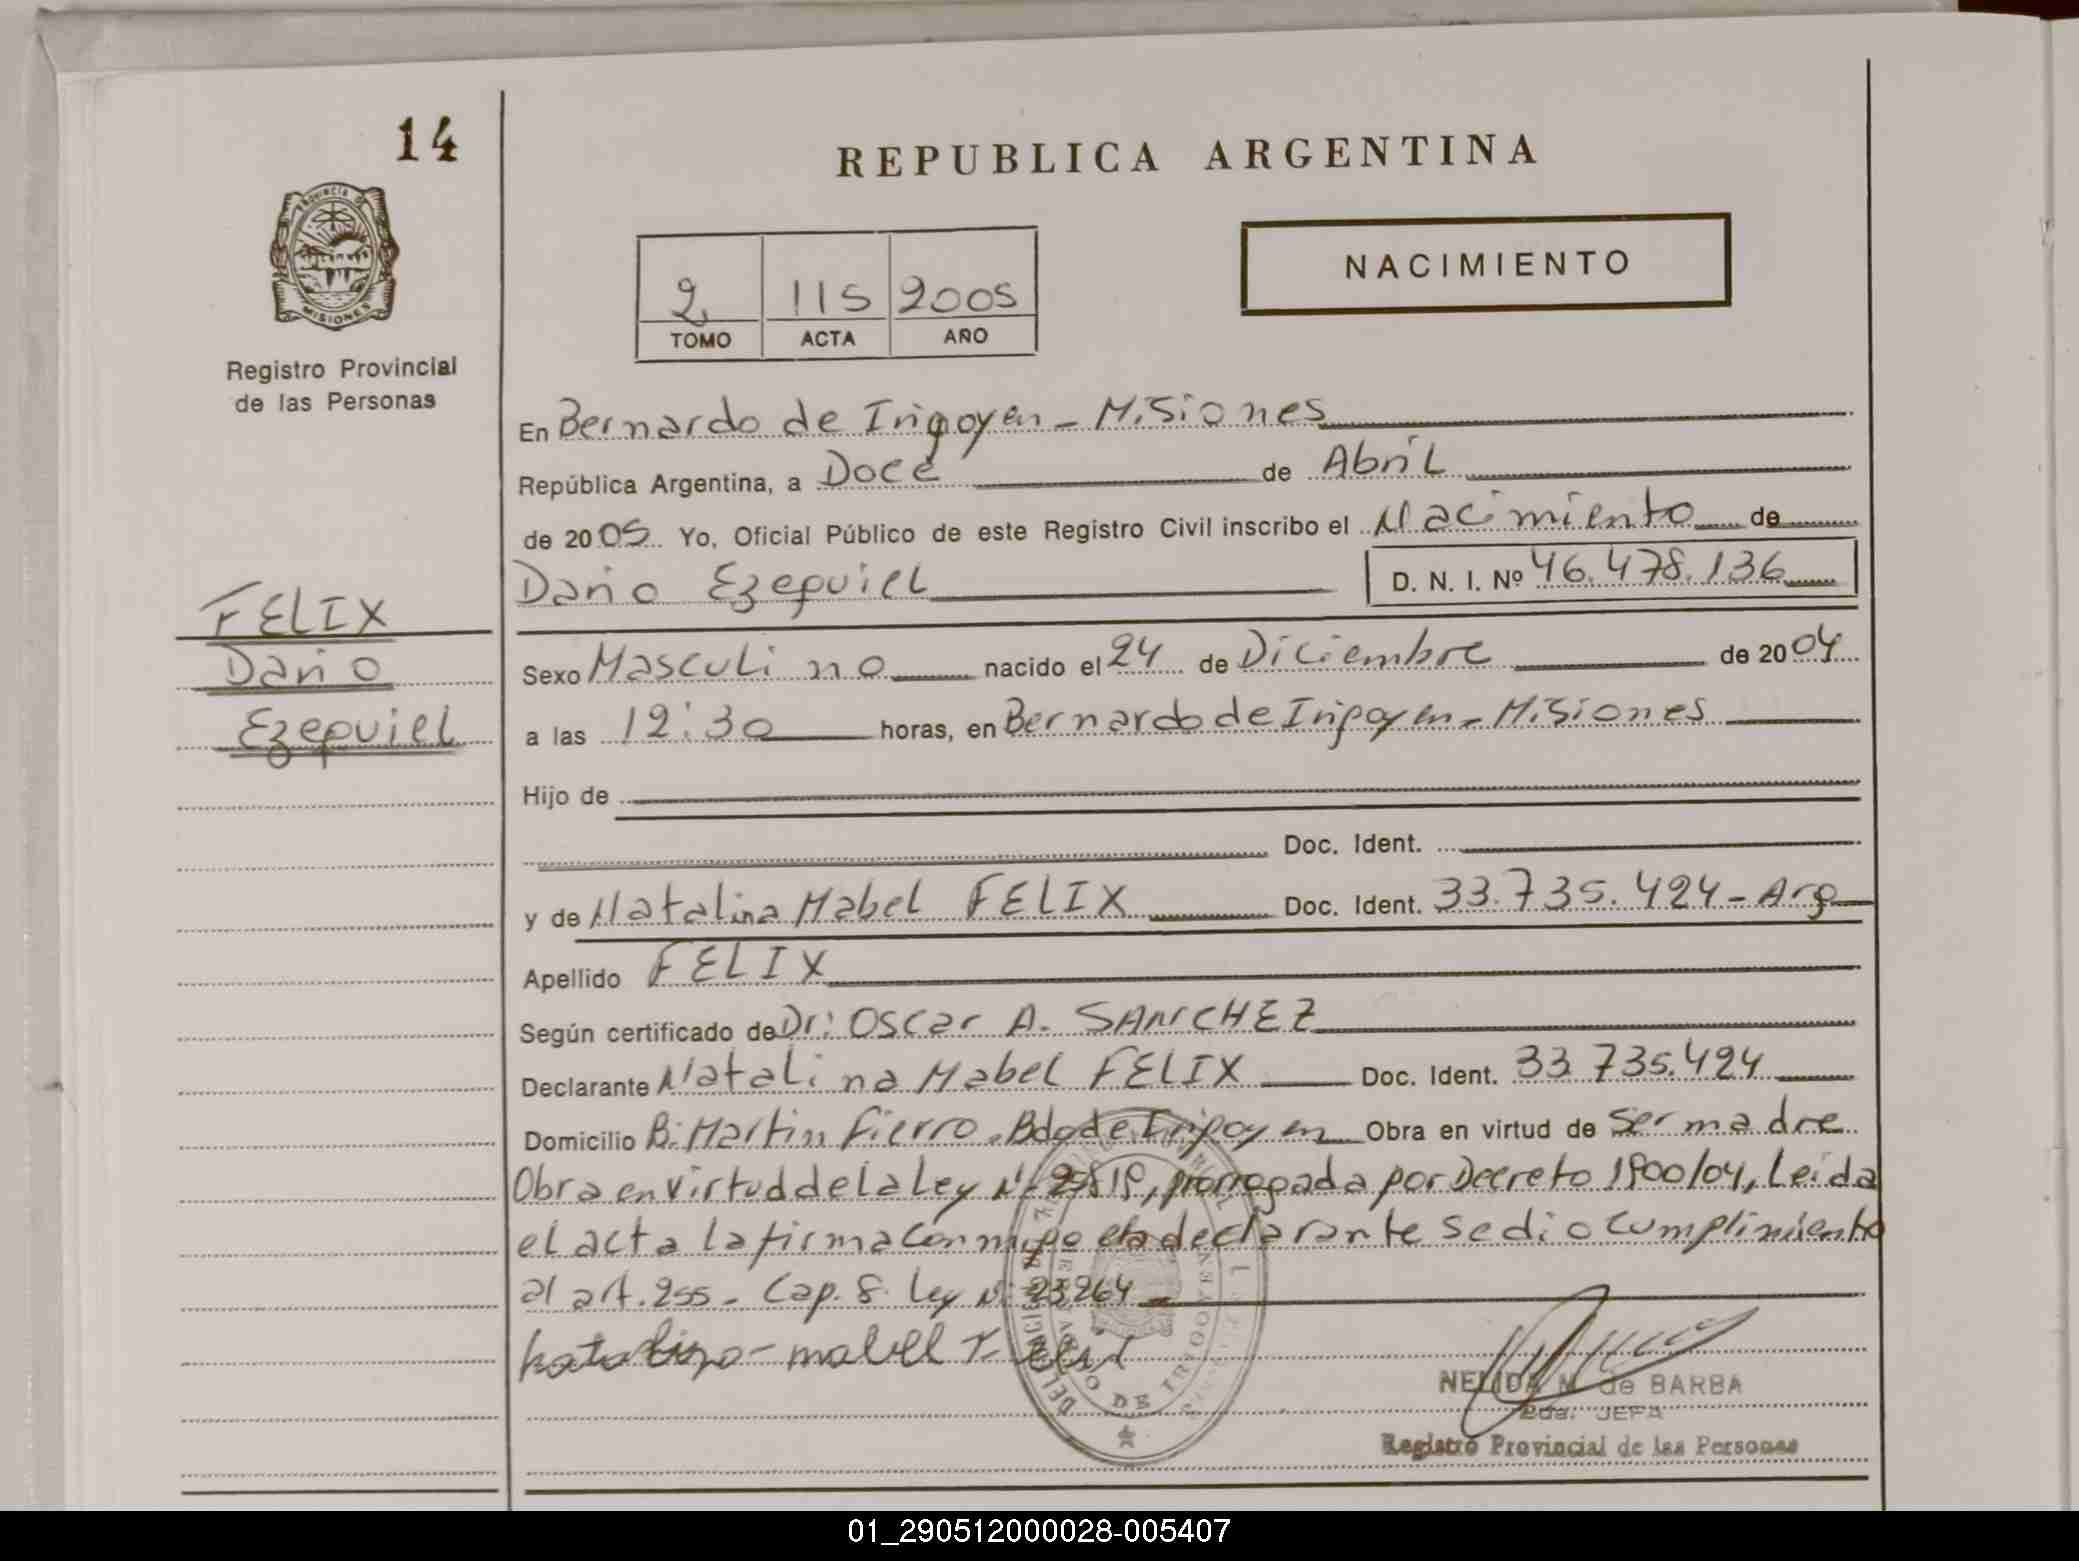 14
REPUBLICA ARGENTINA
PROVINCIA DE
MISIONES
NACIMIENTO
2 115 2005
TOMO ACTA AÑO
Registro Provincial
de las Personas
En Bernardo de Irigoyen - Misiones
República Argentina, a Doce de Abril
de 2005 Yo, Oficial Público de este Registro Civil inscribo el Nacimiento de
Dario Ezequiel D. N. I. Nº 46.478.136
FELIX
Dario
Ezequiel
Sexo Masculino nacido el 24 de Diciembre de 2004
a las 12:30 horas, en Bernardo de Irigoyen - Misiones
Hijo de
Doc. Ident.
y de Natalina Mabel FELIX Doc. Ident. 33.735.424 - Arg
Apellido FELIX
Según certificado de Dr: Oscar A. SANCHEZ
Declarante Natalina Mabel FELIX Doc. Ident. 33.735.424
Domicilio B: Martin Fierro. Bdo de Irigoyen Obra en virtud de Ser madre
Obra en virtud de la Ley Nº 25819, prorrogada por Decreto 1900/04, Leida
el acta la firma conmigo la declarante se dio cumplimiento
al art. 255 - Cap. 8. Ley Nº 23264
mabel Felix
DE IRIGOYEN
NELIDA N. de BARBA
2da. JEFA
Registro Provincial de las Personas
01_290512000028-005407